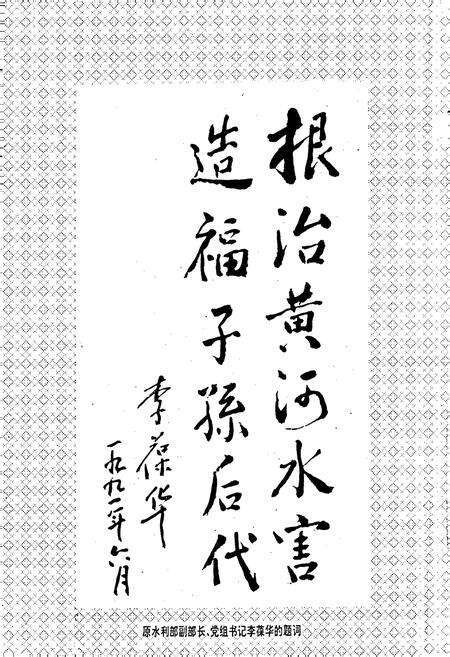 根治黄河水害
造福子孫后代
李葆华
一九九一年六月
原水利部副部长、党组书记李葆华的题词